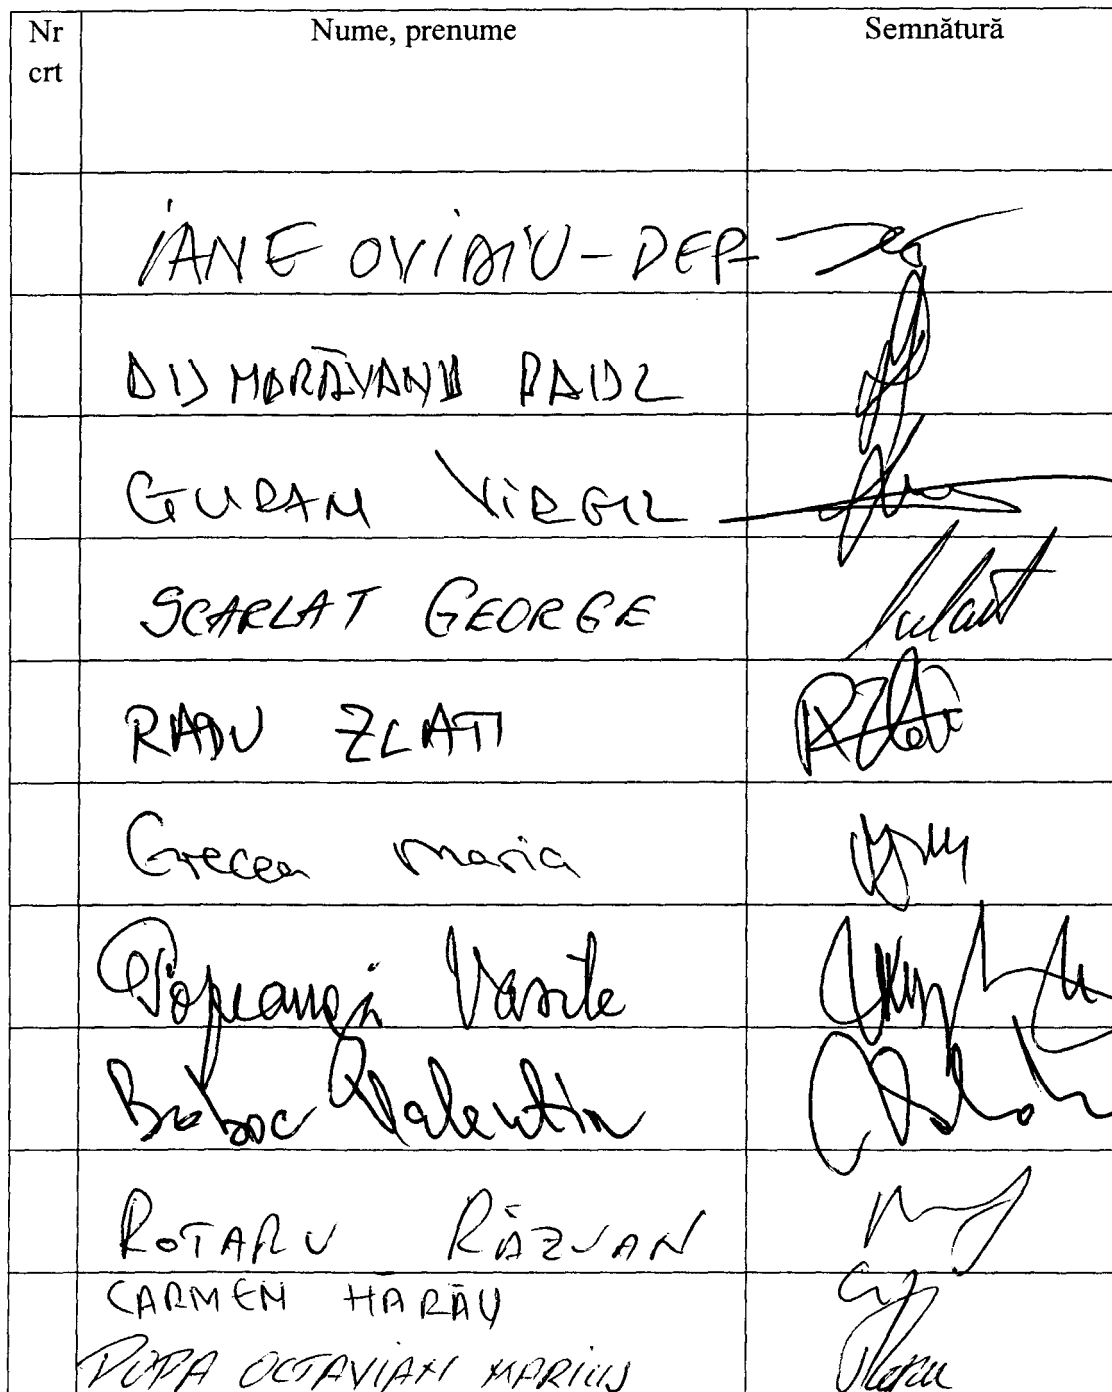 Nr crt Nume, prenume Semnătură
IANE OVIDIU - DEP
DUMORĂVANU PAUL
GURAN VIRGIL
SCARLAT GEORGE
RADU ZLATI
Grecea Maria
Popeangă Vasile
Boboc Valentin
ROTARU RĂZVAN
CARMEN HARĂU
POPA OCTAVIAN MARIUS